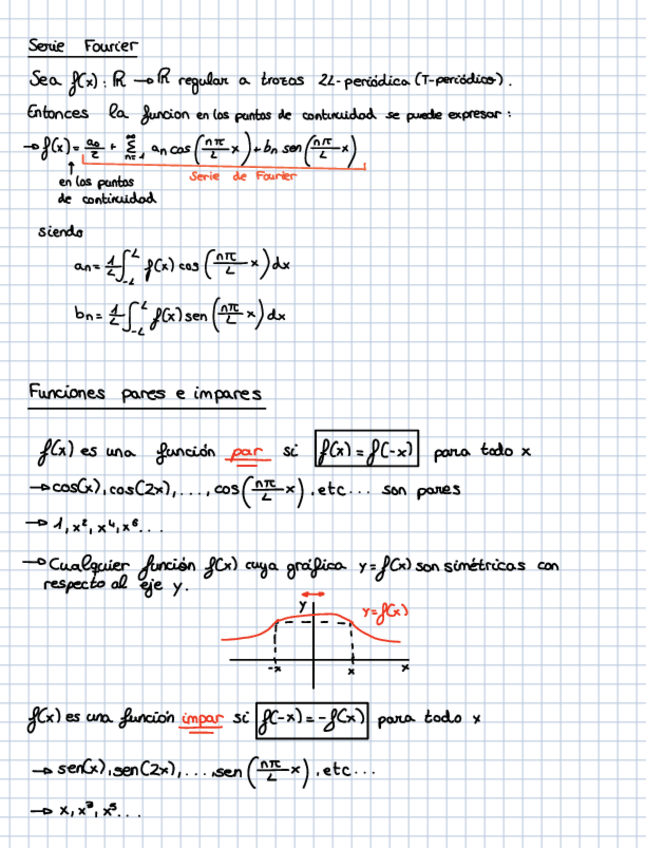 Serie Fourier
Sea f(x): ℝ → ℝ regular a trozos 2L-periódica (T-periódico).
Entonces la funcion en los puntos de continuidad se puede expresar:
→ f(x) = a₀/2 + Σ_{n=1}^{∞} aₙ cos(nπ/L x) + bₙ sen(nπ/L x)
↑ Serie de Fourier
en los puntos
de continuidad
siendo
aₙ = 1/L ∫_{-L}^{L} f(x) cos(nπ/L x) dx
bₙ = 1/L ∫_{-L}^{L} f(x) sen(nπ/L x) dx
Funciones pares e impares
f(x) es una función par si f(x) = f(-x) para todo x
→ cos(x), cos(2x), ..., cos(nπ/L x), etc... son pares
→ 1, x², x⁴, x⁶...
→ Cualquier función f(x) cuya gráfica y = f(x) son simétricas con
respecto al eje y.
y y=f(x)
-x x x
f(x) es una función impar si f(-x) = -f(x) para todo x
→ sen(x), sen(2x), ..., sen(nπ/L x), etc...
→ x, x³, x⁵...